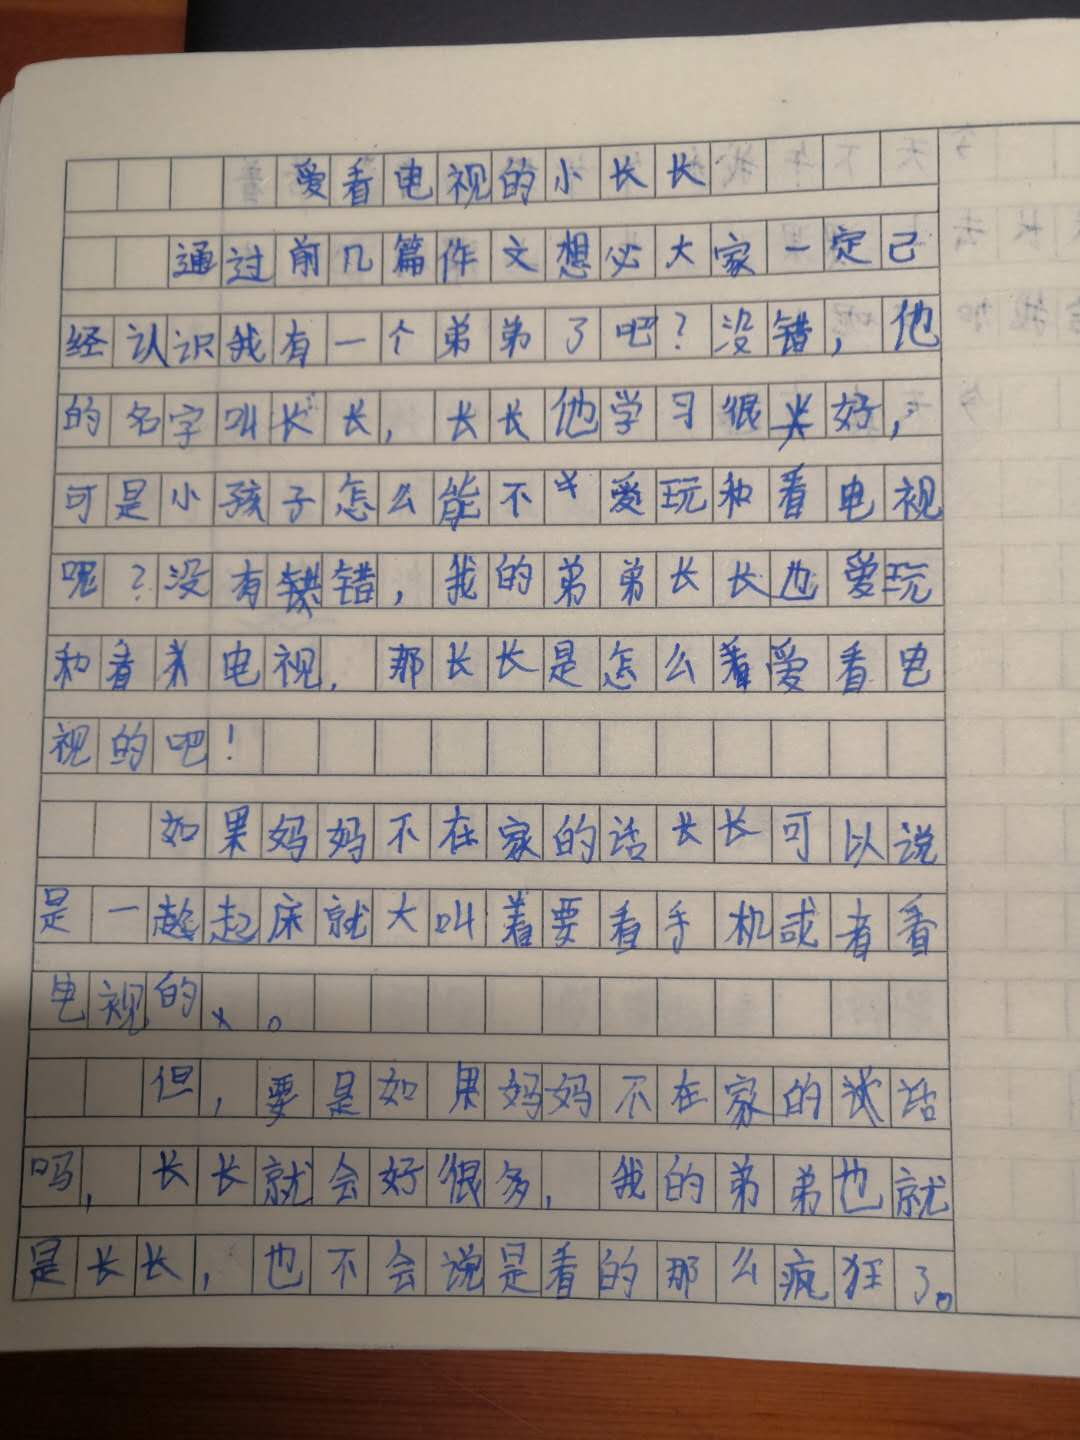 爱看电视的小长长
通过前几篇作文想必大家一定己
经认识我有一个弟弟了吧？没错，他
的名字叫长长，长长他学习很好，
可是小孩子怎么能不爱玩和看电视
呢？没有错，我的弟弟长长也爱玩
和看电视，那长长是怎么爱看电
视的吧！
如果妈妈不在家的话长长可以说
是一起床就大叫着要看手机或者看
电视的。
但，要是如果妈妈不在家的话
吗，长长就会好很多，我的弟弟也就
是长长，也不会说是看的那么疯狂了。